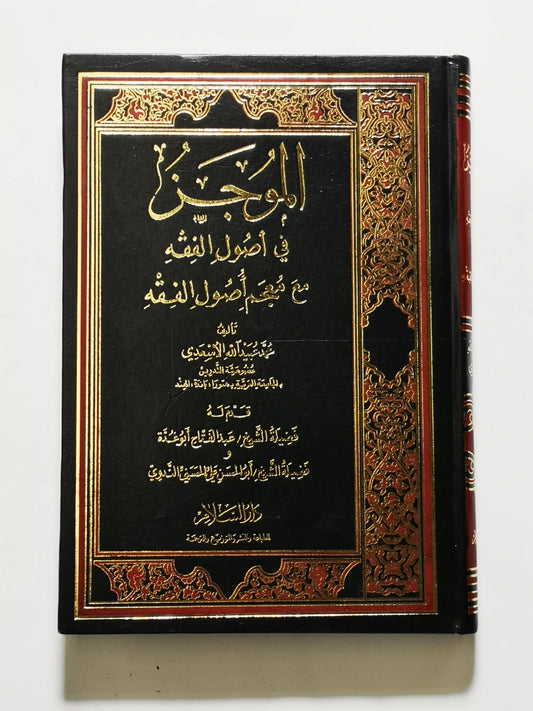 الموجز
في أصول الفقه
مع معجم أصول الفقه
تأليف
محمد عبيد الله الأسعدي
عضو هيئة التدريس
بالجامعة العربية، هتورا، باندة، الهند
قدم له
فضيلة الشيخ/ عبد الفتاح أبو غدة
و
فضيلة الشيخ/ أبو الحسن علي الحسني الندوي
دار السلام
للطباعة والنشر والتوزيع والترجمة